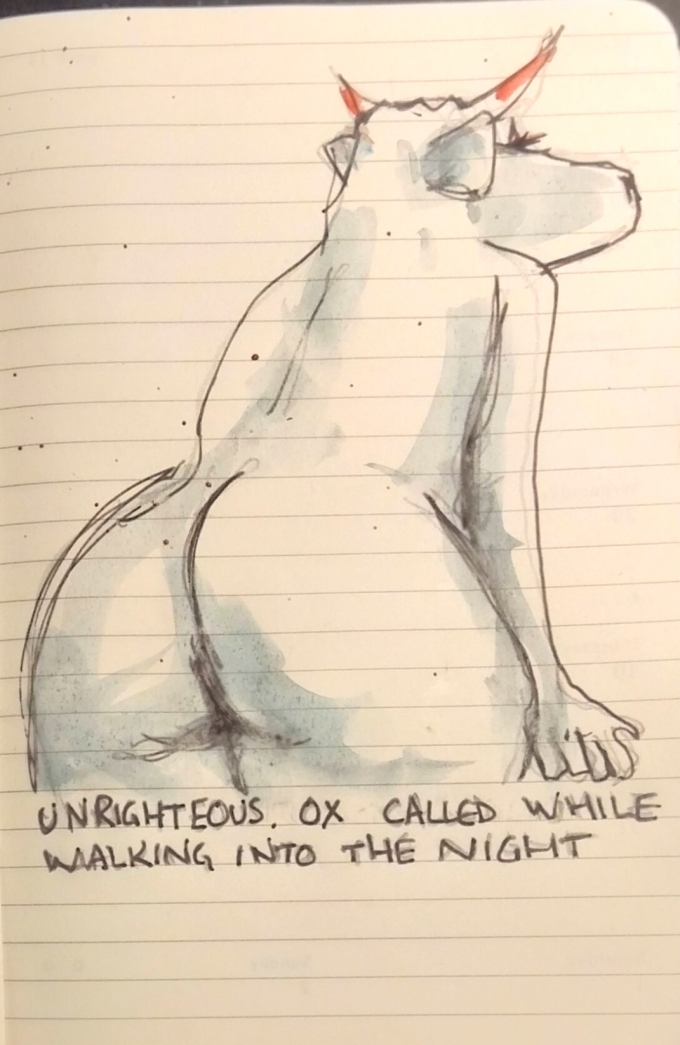 UNRIGHTEOUS. OX CALLED WHILE
WALKING INTO THE NIGHT